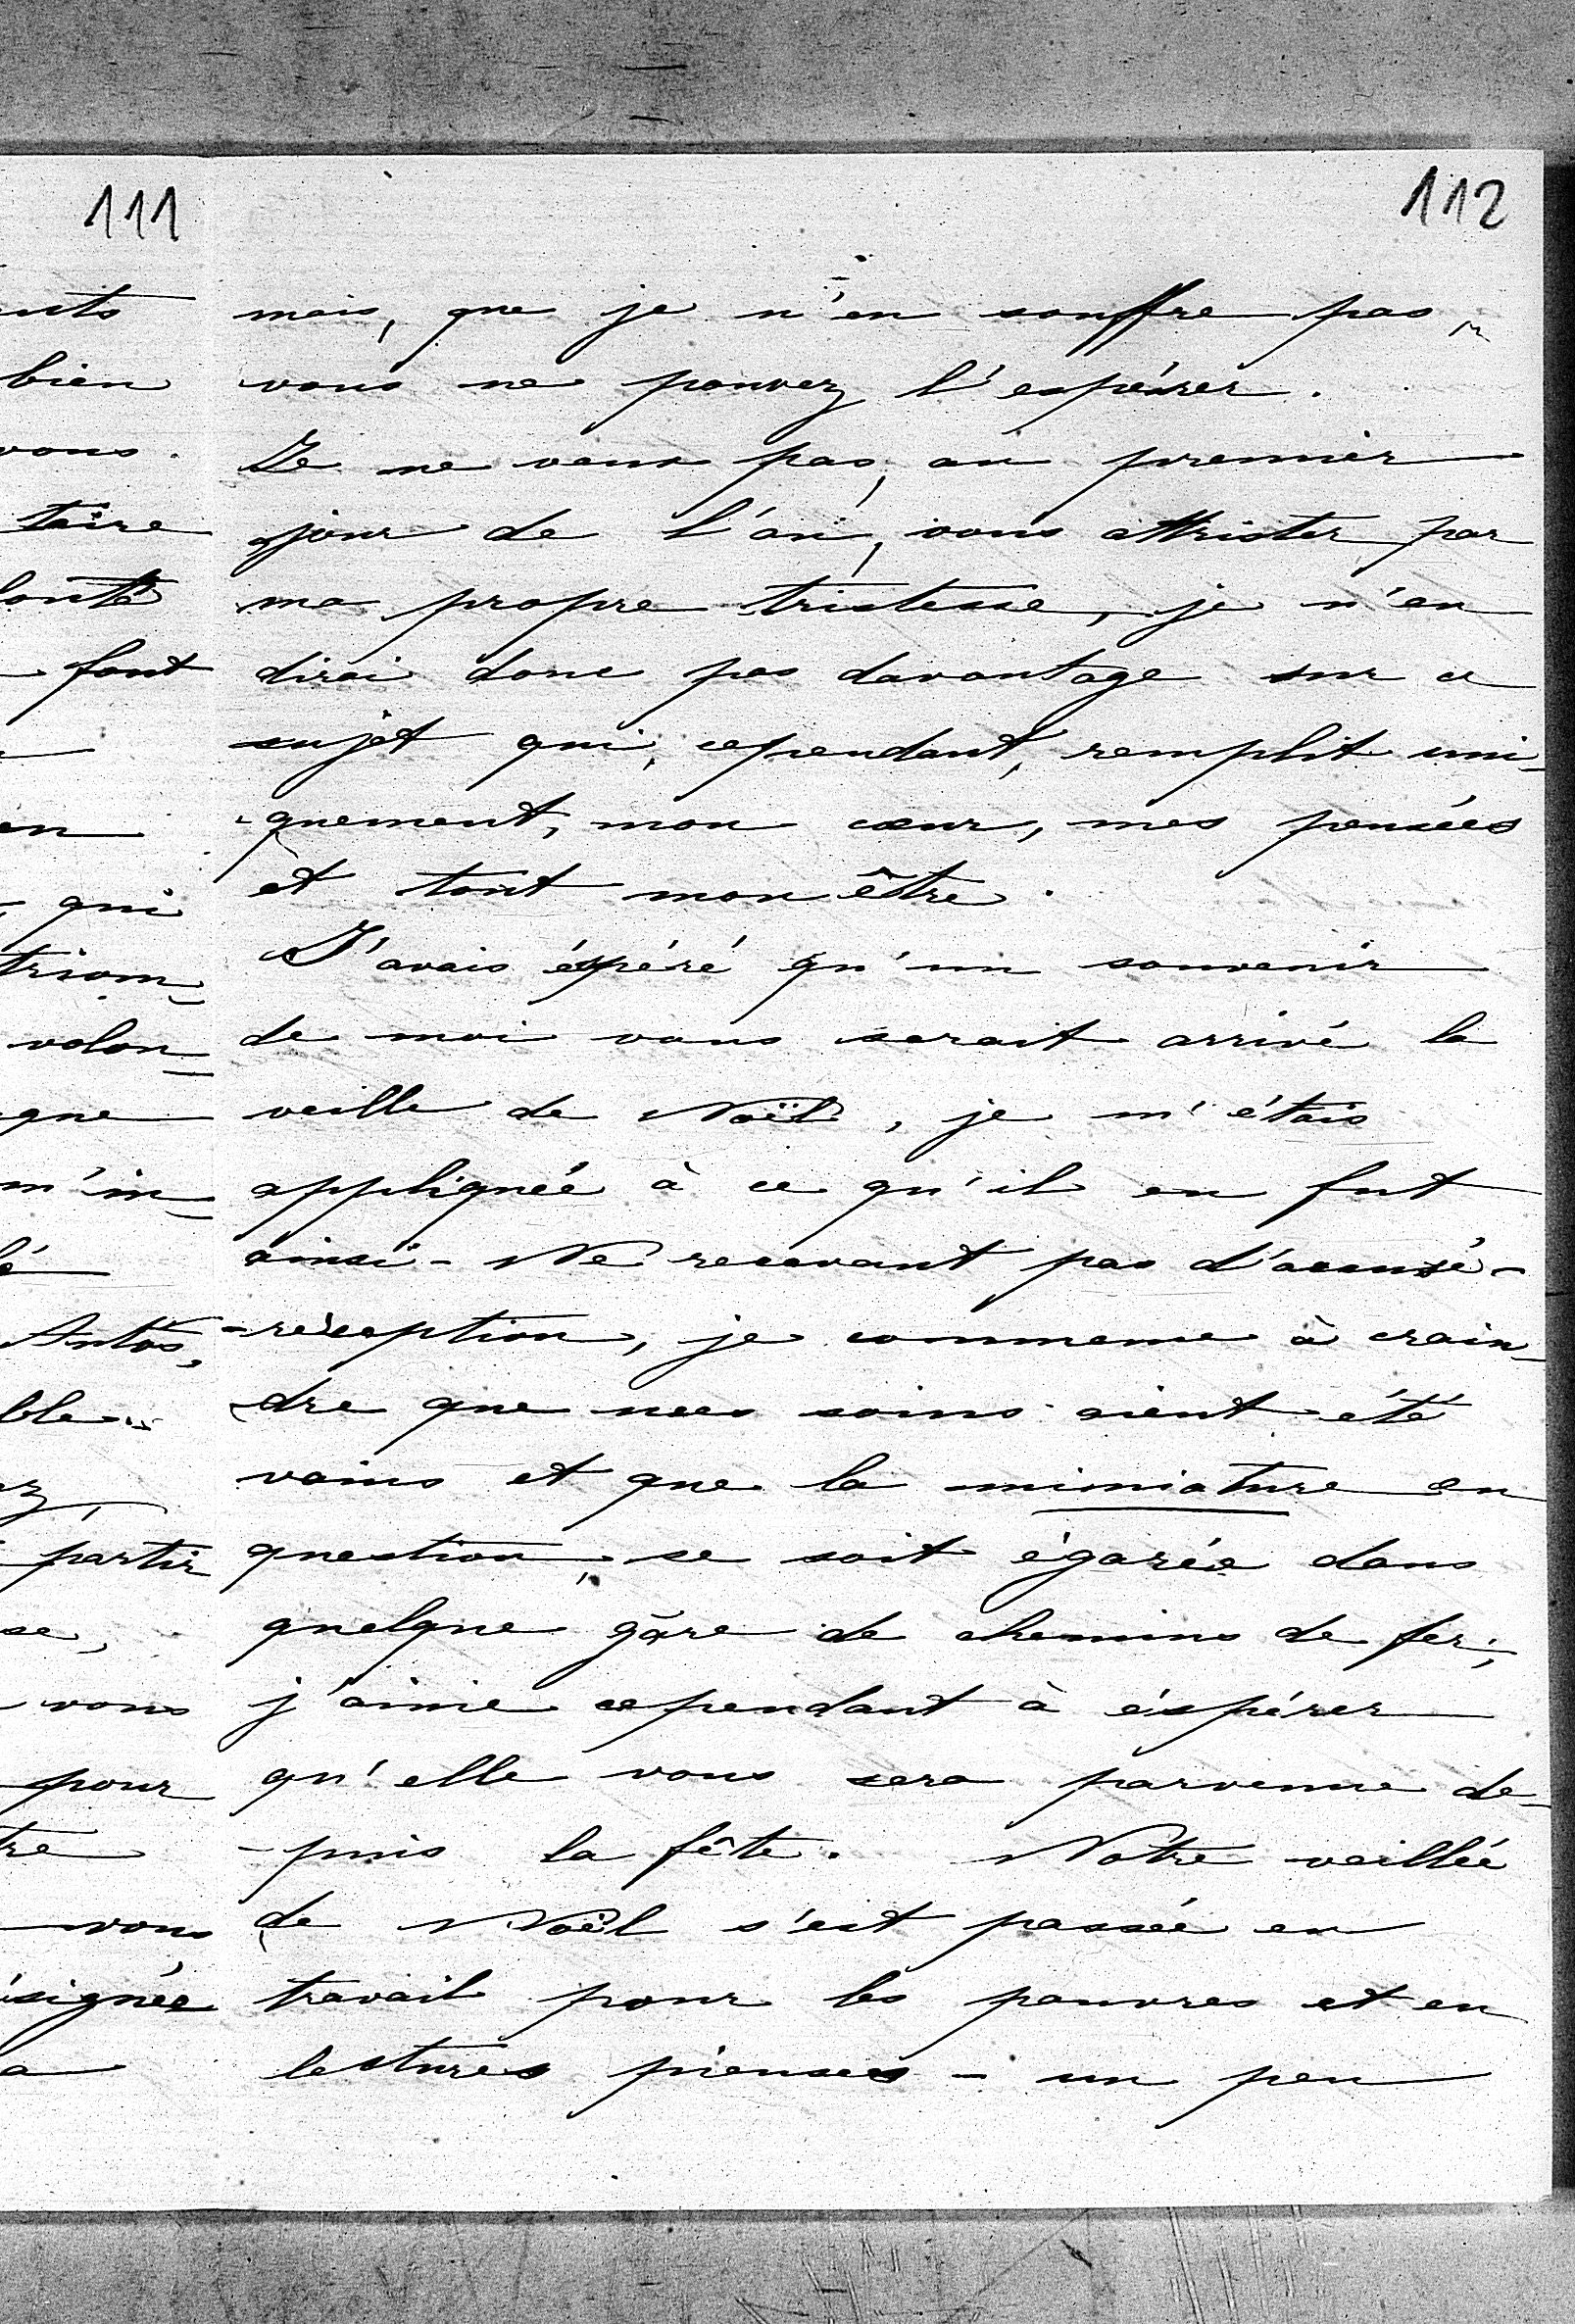 111
uits
bien
vous.
taire
lonté
font
en
qui
triom-
volon-
que
m'in-
lé
Antos,
ble.
ez,
partir
se,
vous
pour
tre
vous
ésignée
a
112
mais, que je n'en souffre pas,
vous ne pouvez l'espérer.
Je ne veux pas, au premier
jour de l'an, vous attrister par
ma propre tristesse, je n'en
dirai donc pas davantage sur ce
sujet qui, cependant, remplit uni-
-quement, mon cœur, mes pensées
et tout mon être.
J'avais éspéré qu'un souvenir
de moi vous serait arrivé la
veille de Noël, je m'étais
appliquée à ce qu'il en fut
ainsi - Ne recevant pas d'accusé-
-réception, je commence à crain-
dre que mes soins aient été
vains et que la miniature en
question, se soit égarée dans
quelque gare de chemins de fer;
j'aime cependant à éspérer
qu'elle vous sera parvenue de-
-puis la fête. Notre veillée
de Noël s'est passée en
travail pour les pauvres et en
lectures pieuses - un peu